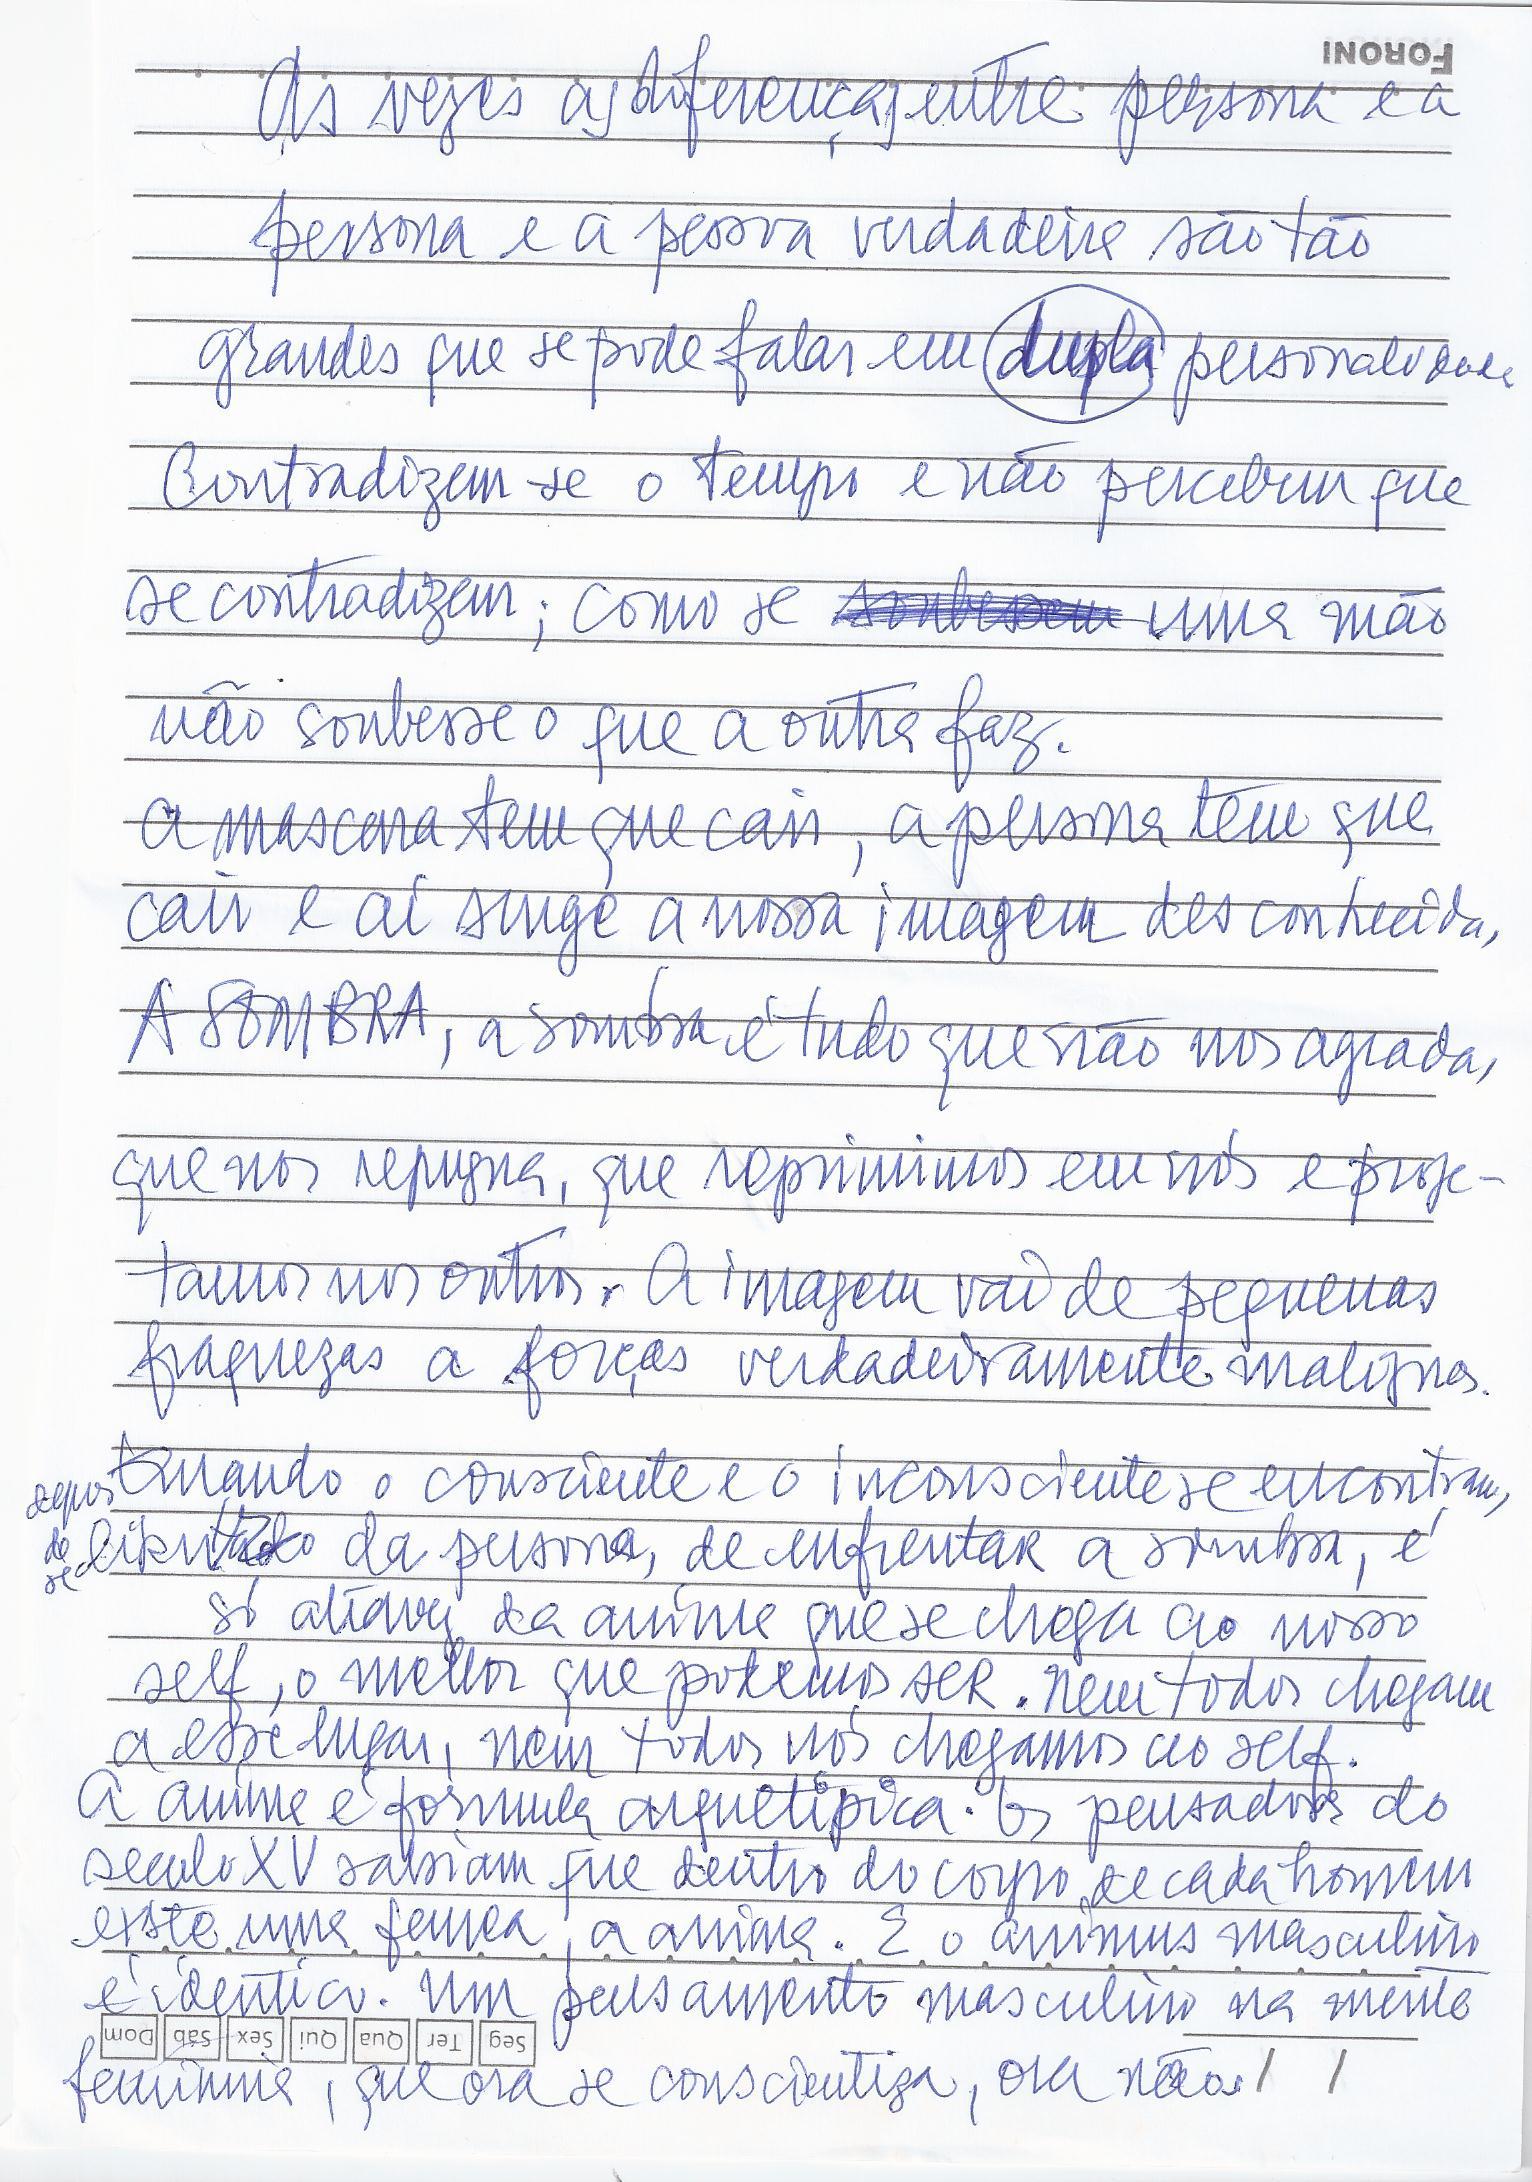 FORONI
As vezes as diferenças entre persona e a
persona e a pessoa verdadeira são tão
grandes que se pode falar em dupla personalidade
Contradizem-se o tempo e não percebem que
se contradizem; como se soubessem uma mão
não soubesse o que a outra faz.
a mascara tem que cair, a persona tem que
cair e aí surge a nossa imagem desconhecida,
A SOMBRA, a sombra é tudo que não nos agrada,
que nos repugna, que reprimimos em nós e proje-
tamos nos outros. A imagem vai de pequenas
fraquezas a forças verdadeiramente malignas.
Quando o consciente e o inconsciente se encontram,
depois de se da persona, de enfrentar a sombra, é
só através da anima que se chega ao nosso
self, o melhor que podemos SER. Nem todos chegam
a esse lugar, nem todos nós chegamos ao self.
A anima é formula arquetípica. Os pensadores do
seculo XV sabiam que dentro do corpo de cada homem
existe uma femea, a anima. E o animus masculino
é identico. Um pensamento masculino na mente
Seg Ter Qua Qui Sex Sáb Dom
feminina, que ora se conscientiza, ora não. / /